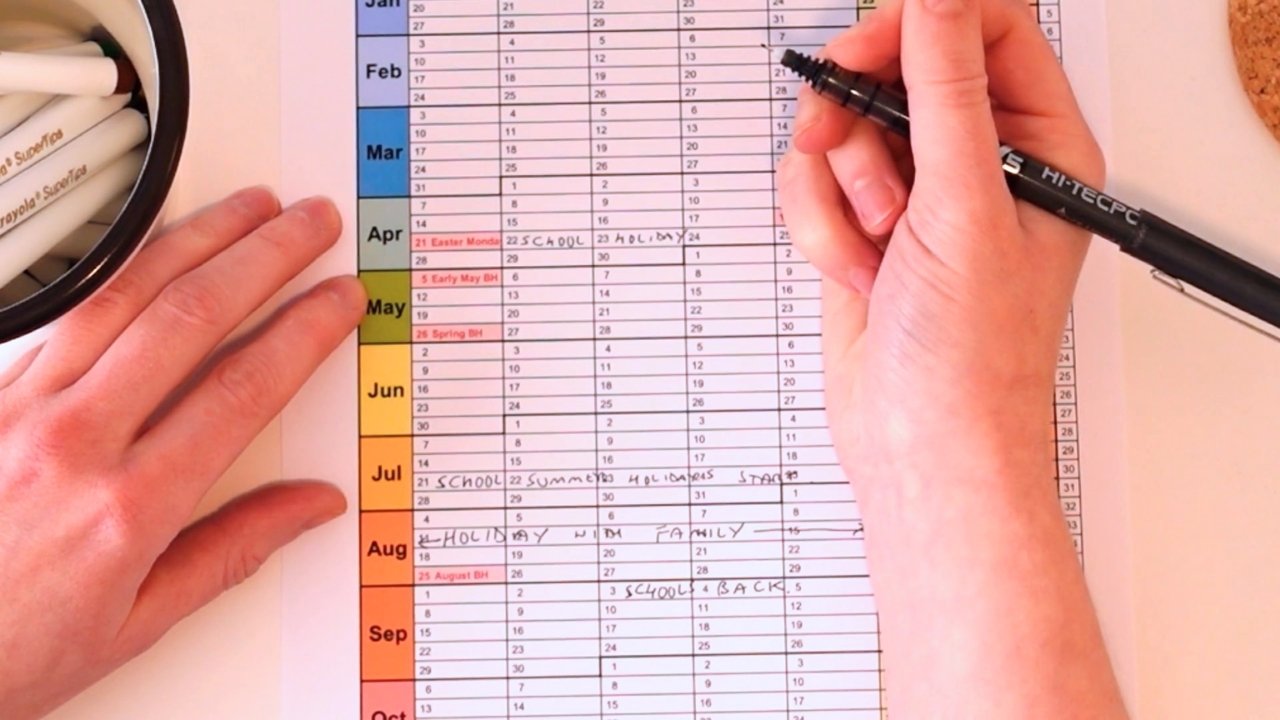 Jan 20 21 22 23 24
27 28 29 30 31 5
Feb 3 4 5 6 7 6
10 11 12 13
17 18 19 20 21
24 25 26 27 28
Mar 3 4 5 6 7
10 11 12 13 14
17 18 19 20 21
24 25 26 27
31 1 2 3
Apr 7 8 9 10
14 15 16 17
21 Easter Monda 22 SCHOOL 23 HOLIDAY 24 25
28 29 30 1 2
May 5 Early May BH 6 7 8 9
12 13 14 15 16
19 20 21 22 23
26 Spring BH 27 28 29 30
Jun 2 3 4 5 6
9 10 11 12 13
16 17 18 19 20
23 24 25 26 27
30 1 2 3 4
Jul 7 8 9 10 11
14 15 16 17 18
21 SCHOOL 22 SUMMER HOLIDAYS START
28 29 30 31 1
Aug 4 5 6 7 8
HOLIDAY WITH FAMILY 15
18 19 20 21 22
25 August BH 26 27 28 29
Sep 1 2 3 SCHOOLS 4 BACK. 5
8 9 10 11 12
15 16 17 18 19
22 23 24 25 26
29 30 1 2 3
Oct 6 7 8 9 10
13 14 15 16 17
24
24
25
26
27
28
29
30
31
32
33
SuperTips
Crayola SuperTips
V5 HI-TECPC